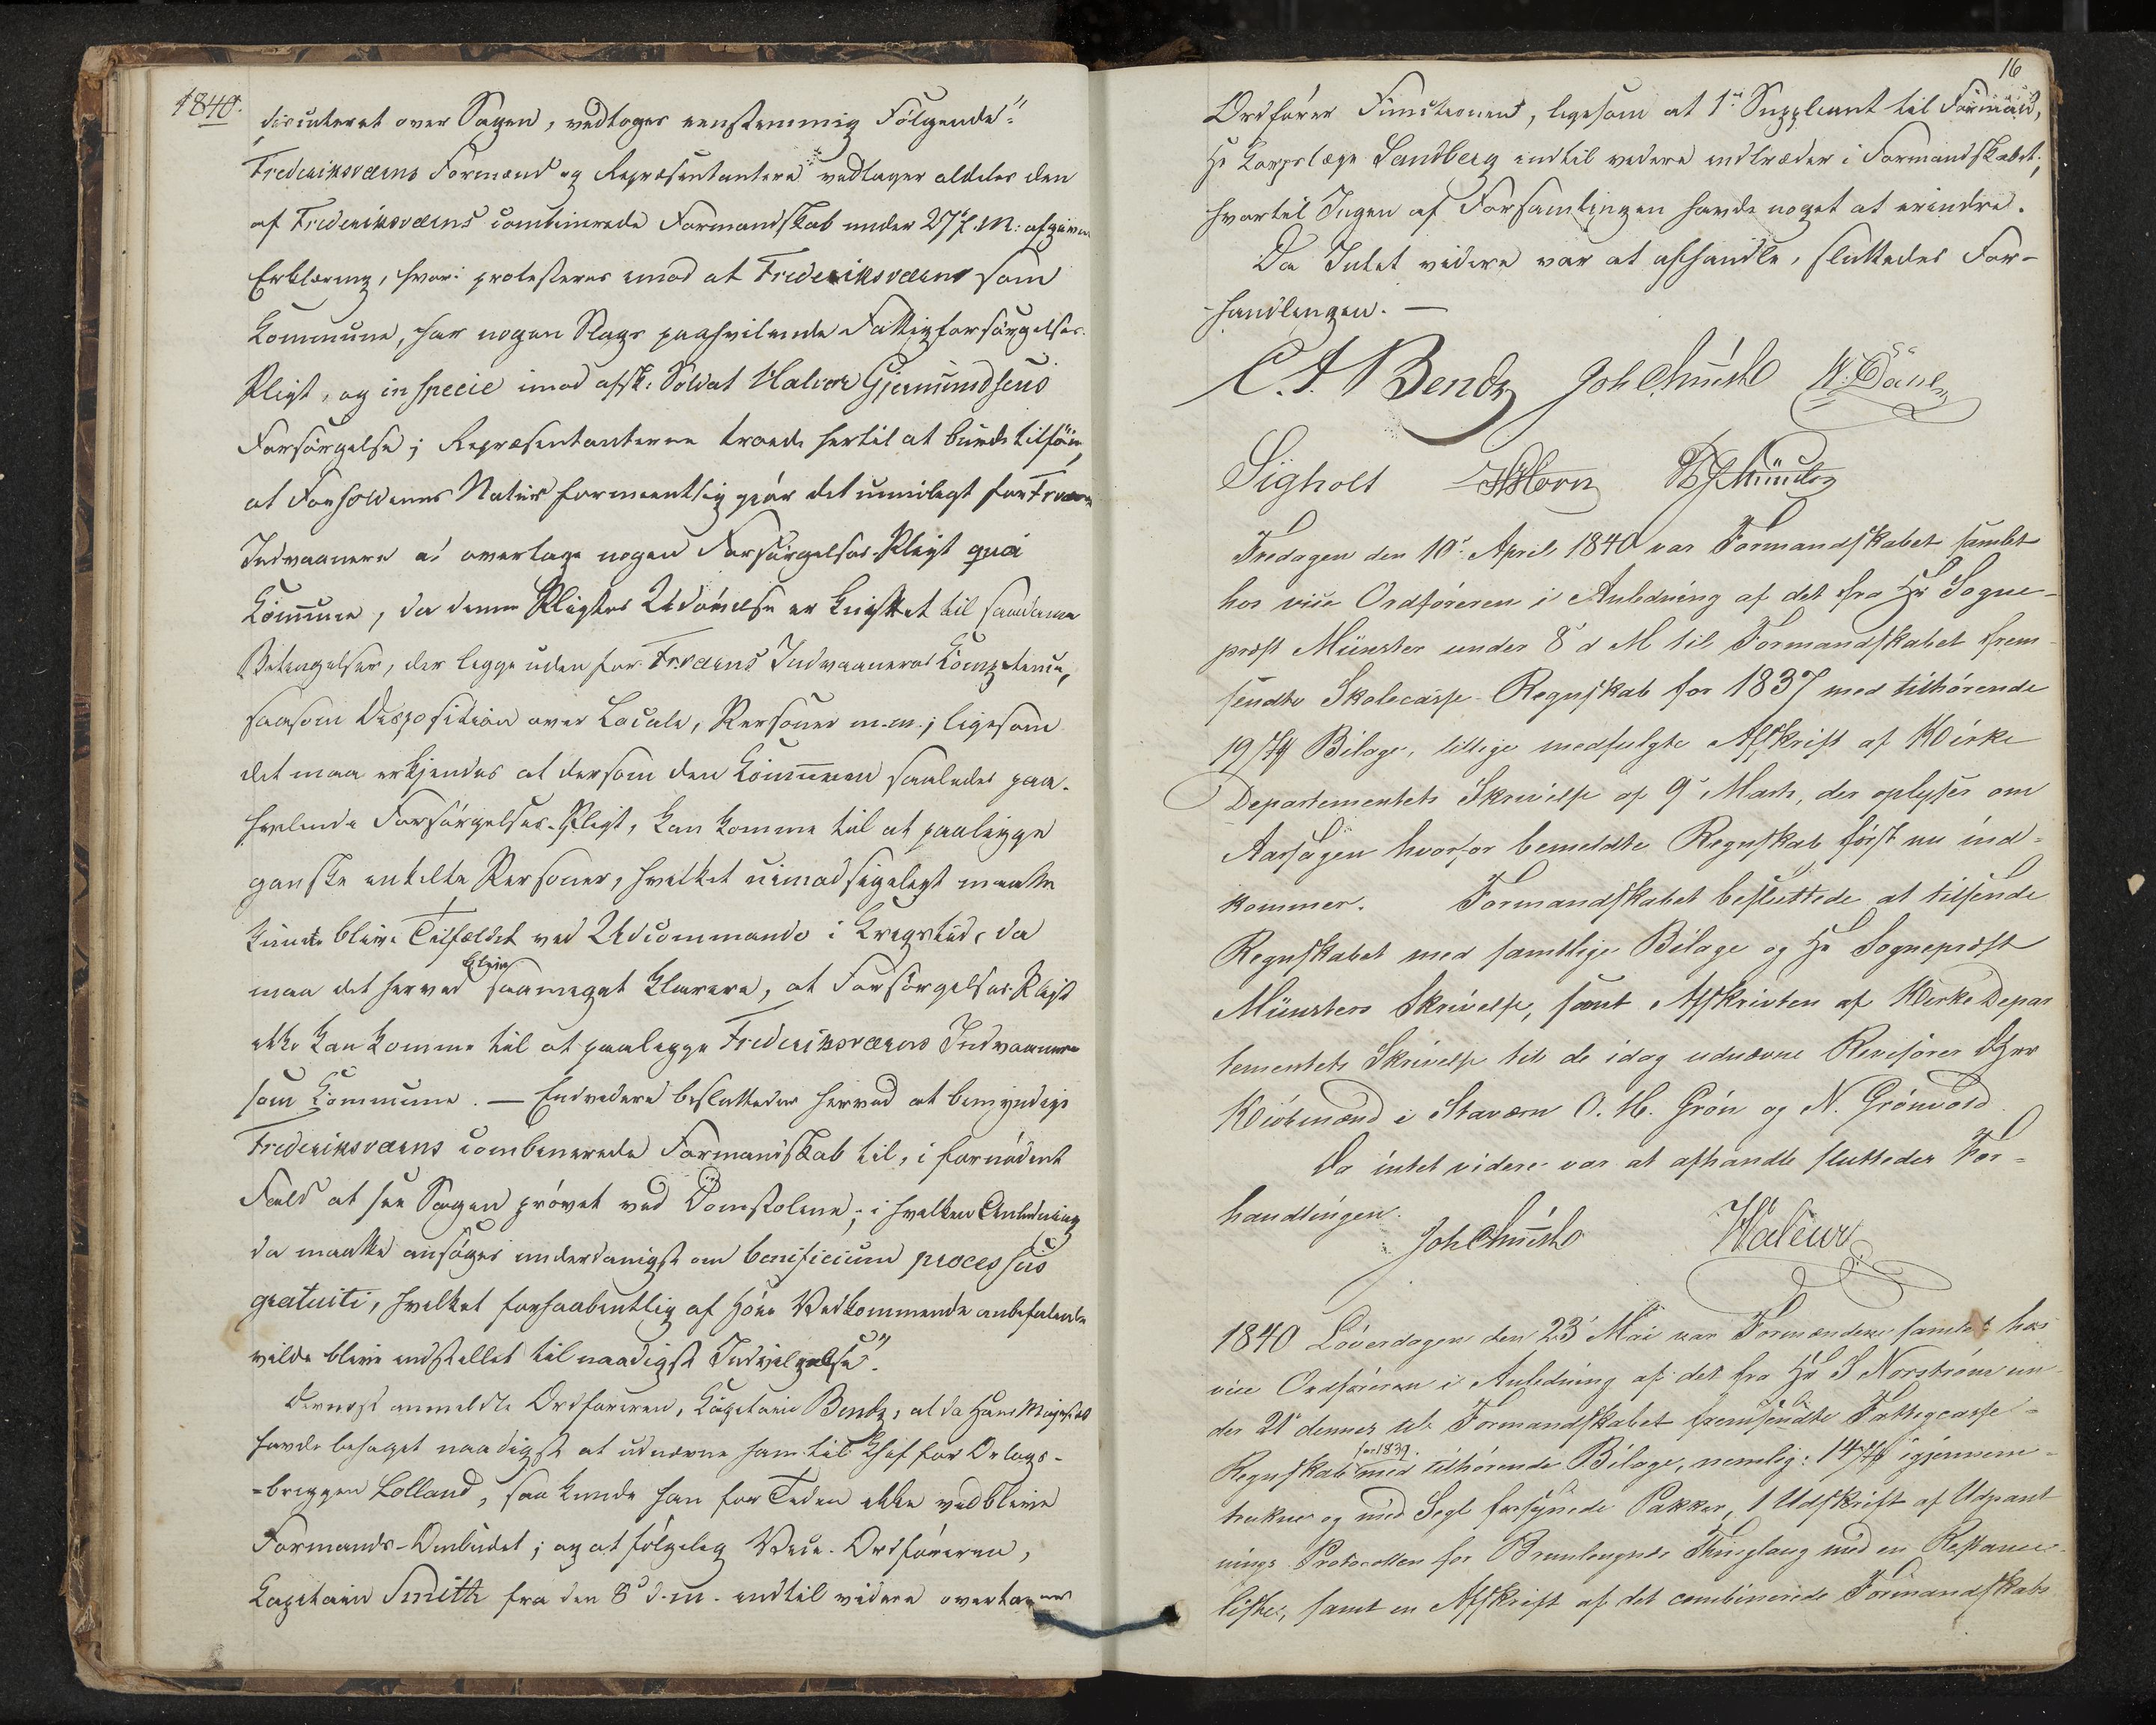 1840.
discuteret over Sagen, vedtoges eenstemmig Følgende:"
Frederiksværns Formænd og Repræsentantere vedtager aldeles den
af Frederiksværns combinerede Formandskab under 27' f. M: afgivne
Erklæring, hvori protesteres imod at Frederiksværn som
Kommune, har nogen Slags paahvilende Fattigforsørgelses-
Pligt, og in specie imod afsk: Soldat Halvor Gjermundsens
Forsørgelse; Repræsentanterne troede hertil at burde tilføie,
at Forholdenes Natur formeentlig gjør det umuligt for Frværns
Indvaanere at overtage nogen Forsørgelses-Pligt qua
Kommune, da denne Pligtes Udøvelse er knyttet til saadanne
Betingelser, der ligge uden for Fr.værns Indvaaneres Competence,
saasom Disposition over Locale, Personer m.m.; ligesom
det maa erkjendes at dersom den Kommunen saaledes paa-
hvilende Forsørgelses-Pligt, kan komme til at paaligge
ganske enkelte Personer, hvilket uimodsigeligt maatte
kunde blive Tilfældet ved Udcommando i Krigstid, da
maa det herved blive saameget klarere, at Forsørgelses-Pligt
ikke kan komme til at paaligge Frederiksværns Indvaanere
som Kommune. — Endvidere besluttedes herved at bemyndige
Frederiksværns combinerede Formandskab til, i fornødent
Fald at see Sagen prøvet ved Domstolene; i hvilken Anledning
da maatte ansøges underdanigst om beneficium processus
gratuiti, hvilket forhaabentlig af høie Vedkommende anbefalende
vilde blive indstillet til naadigst Indvilgelse".
Dernæst anmeldte Ordføreren, Capitain Bentz, at da Hans Majestæt
havde behaget naadigst at udnævne ham til Chef for Orlogs-
-briggen Lolland, saa kunde han for Tiden ikke vedblive
Formands-Ombudet; og at følgelig Vice-Ordføreren,
Capitain Smith fra den 8' d.M. indtil videre overtager
16
Ordfører Functionen, ligesom at 1' Suppleant til Formænd,
Hr Korpslæge Sandberg indtil videre indtræder i Formandskabet;
hvortil Ingen af Forsamlingen havde noget at erindre.
Da Intet videre var at afhandle, sluttedes For-
-handlingen. —
Sigholt Horn
Fredagen den 10' April 1840 var Formandskabet samlet
hos vice Ordføreren i Anledning af det fra Hr Sogne-
præst Münster under 8' d M til Formandskabet frem-
sendte Skolecasse-Regnskab for 1837 med tilhørende
19 Bilage, tillige medfulgte Afskrift af Kirke
Departementets Skrivelse af 9' Marts, der oplyser om
Aarsagen hvorfor bemeldte Regnskab først nu ind-
kommer. Formandskabet besluttede at tilsende
Regnskabet med samtlige Bilage og Hr Sognepræst
Münsters Skrivelse, samt Afskriften af Kirke Depar
tementets Skrivelse til de idag udnævne Revisorer DHrr
Kiøbmænd i Stavern O. H. Grøn og N. Grønvold
Da intet videre var at afhandle sluttedes For-
handlingen.
1840 Løverdagen den 23' Mai var Formændene samlet hos
vice Ordføreren i Anledning af det fra Hr S Norstrøm un-
der 21' dennes til Formandskabet fremsendte Fattigcasse-
Regnskab for 1839. med tilhørende Bilage, nemlig: 14 igjennem-
trukne og med Segl forsynede Pakker, 1 Udskrift af Udpant
nings-Protocollen for Brunlaugnæs Thinglaug med en Restance-
liste, samt en Afskrift af det combinerede Formandskabs